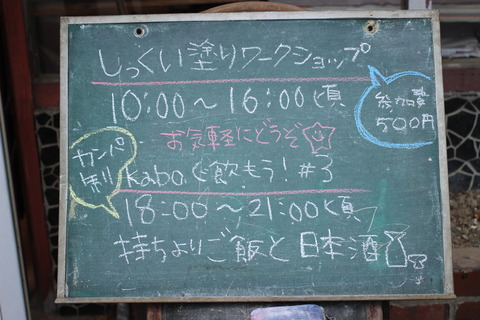 しっくい塗りワークショップ
10:00〜16:00頃
参加費
500円
お気軽にどうぞ
カンパ
制
Kabo.で飲もう!#3
18:00〜21:00頃
持ちよりご飯と日本酒